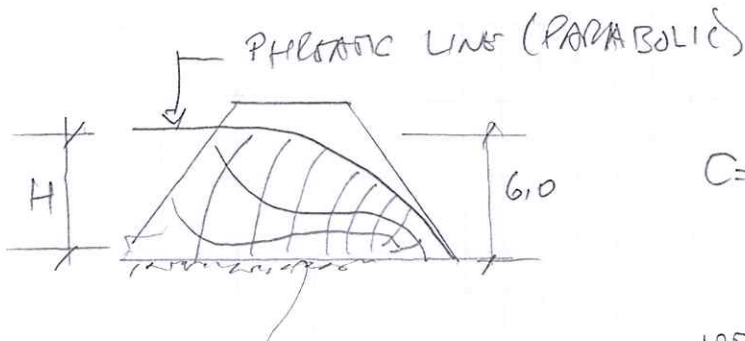 PHREATIC LINE (PARABOLIC)
H
6,0
C=